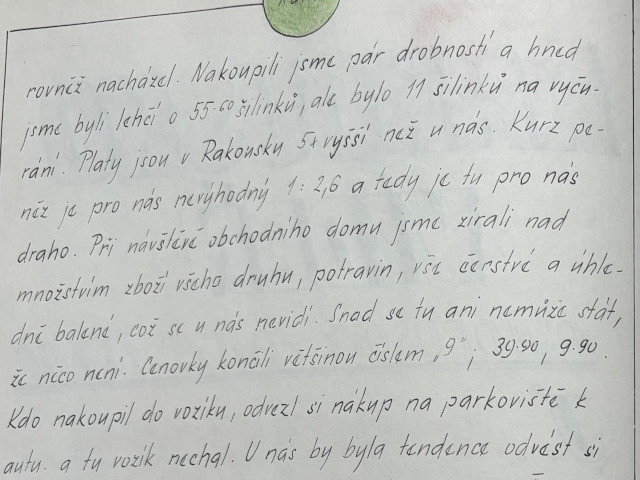 rovněž nacházel. Nakoupili jsme pár drobností a hned
jsme byli lehčí o 55.60 šilinků, ale bylo 11 šilinků na vyču-
rání. Platy jsou v Rakousku 5x vyšší než u nás. Kurz pe-
něz je pro nás nevýhodný 1:2,6 a tedy je tu pro nás
draho. Při návštěvě obchodního domu jsme zírali nad
množstvím zboží všeho druhu, potravin, vše čerstvé a úhle-
dně balené, což se u nás nevidí. Snad se tu ani nemůže stát,
že něco není. Cenovky končili většinou číslem „9"; 39.90, 9.90.
Kdo nakoupil do vozíku, odvezl si nákup na parkoviště k
autu. a tu vozík nechal. U nás by byla tendence odvést si